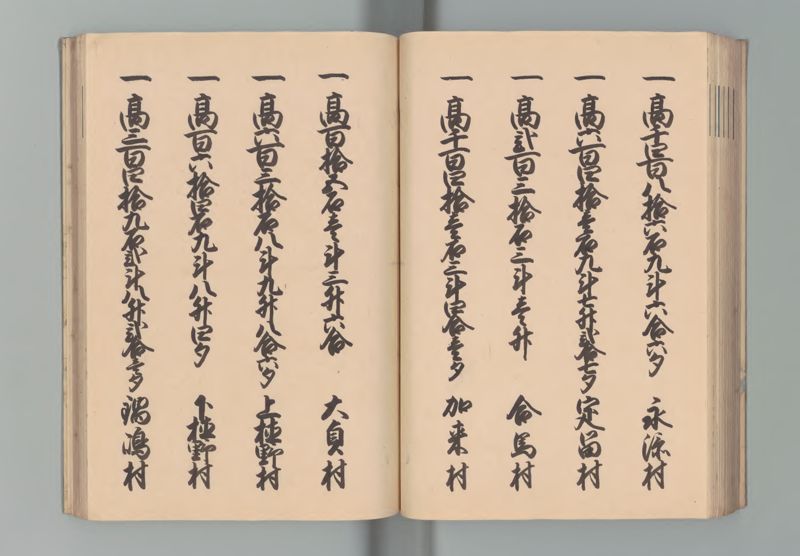 一高千四百八拾六石九斗六合六夕 永添村
一高六百四拾壱石九斗七升弐合七夕 定留村
一高弐百三拾石三斗壱升 合馬村
一高千百四拾壱石三斗四合壱夕 加来村
一高百拾五石壱斗三升六合 大貞村
一高六百三拾石八斗九升八合六夕 上植野村
一高百六拾四石九斗八升四夕 下植野村
一高三百四拾九石弐斗八升弐合七夕 鍋嶋村